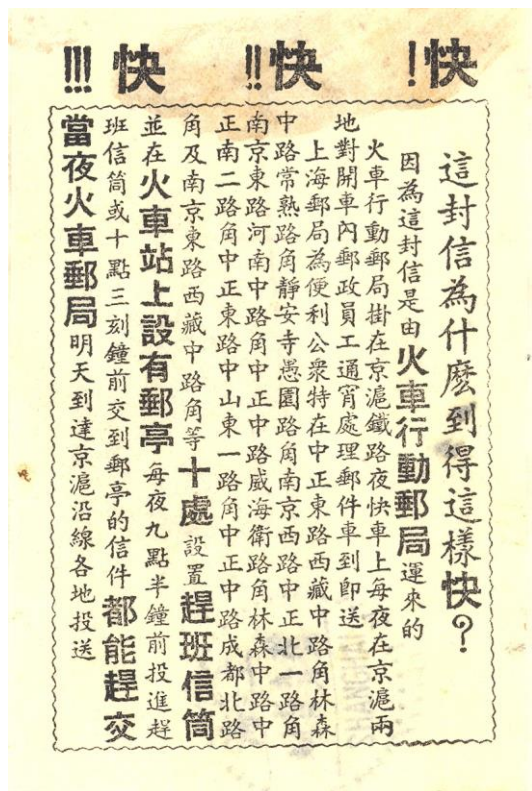 快！　快！！　快！！！
這封信為什麽到得這樣快？
因為這封信是由火車行動郵局運來的
火車行動郵局掛在京滬鐵路夜快車上每夜在京滬兩
地對開車內郵政員工通宵處理郵件車到卽送
上海郵局為便利公衆特在中正東路西藏中路角林森
中路常熟路角靜安寺愚園路角南京西路中正北一路角
南京東路河南中路角中正中路威海衛路角林森中路中
正南二路角中正東路中山東一路角中正中路成都北路
角及南京東路西藏中路角等十處設置趕班信筒
並在火車站上設有郵亭每夜九點半鐘前投進趕
班信筒或十點三刻鐘前交到郵亭的信件都能趕交
當夜火車郵局明天到達京滬沿線各地投送